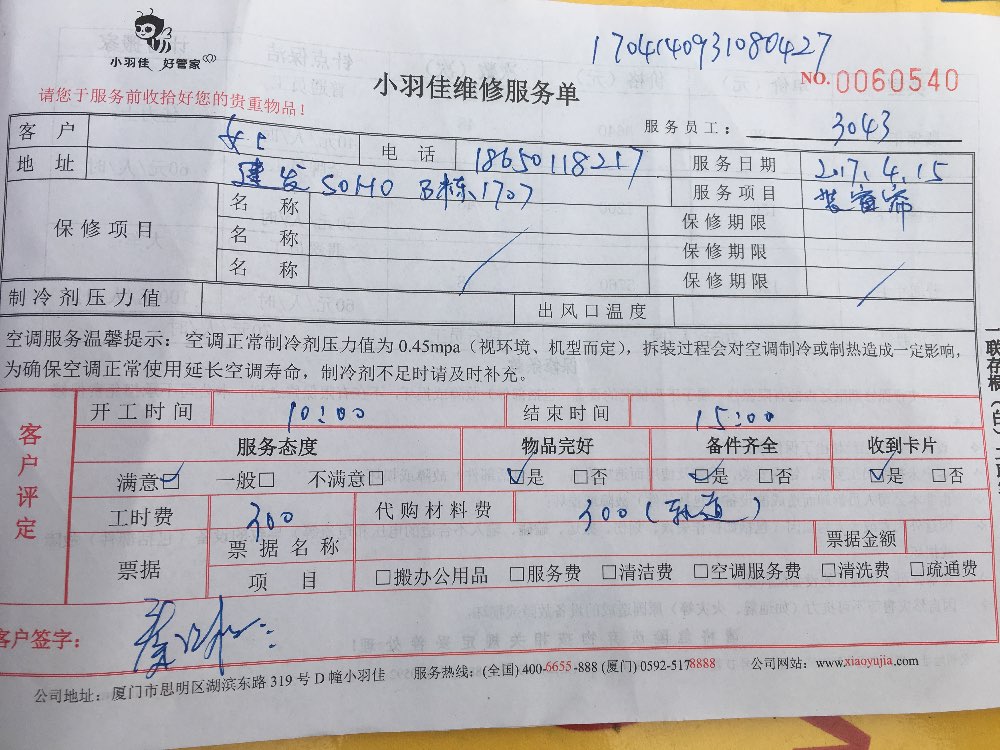 1704140931080427
小羽佳 好管家
小羽佳维修服务单
NO. 0060540
请您于服务前收拾好您的贵重物品！
服务员工： 3043
客户 女士 电话 18650118217 服务日期 2017.4.15
地址 建发 SOHO B栋1707 服务项目 装窗帘
保修项目 名称 保修期限
名称 保修期限
名称 保修期限
制冷剂压力值 出风口温度
空调服务温馨提示：空调正常制冷剂压力值为 0.45mpa（视环境、机型而定），拆装过程会对空调制冷或制热造成一定影响，
为确保空调正常使用延长空调寿命，制冷剂不足时请及时补充。
客户评定
开工时间 10:00 结束时间 15:00
服务态度 物品完好 备件齐全 收到卡片
满意☑ 一般□ 不满意□ ☑是 □否 ☑是 □否 ☑是 □否
工时费 300 代购材料费 300（轨道）
票据 票据名称 票据金额
项目 □搬办公用品 □服务费 □清洁费 □空调服务费 □清洗费 □疏通费
客户签字：
公司地址：厦门市思明区湖滨东路 319 号 D 幢小羽佳 服务热线：(全国) 400-6655-888 (厦门) 0592-5178888 公司网站：www.xiaoyujia.com